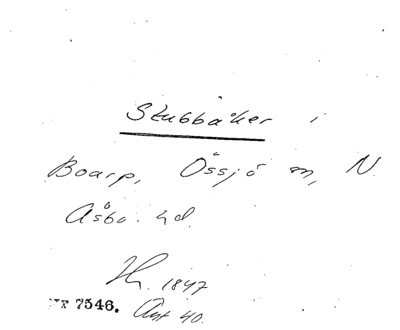 Stubbåker i
Boarp, Össjö sn, N.
Åsbo hd.
1847
Nr 7546. Ant 40.